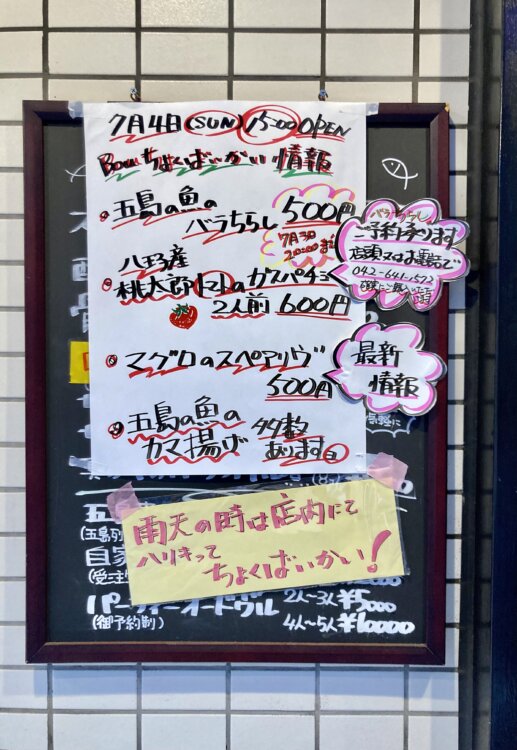 7月4日(SUN) 15:00 OPEN
Bouちょくばいかい情報
五島の魚の
バラちらし 500円
7月3日
20:00まで
八王子産
桃太郎トマトのガスパチョ
2人前 600円
マグロのスペアリヴ
500円
五島の魚の
カマ揚げ
多数
あります
バラちらし
ご予約承ります
店頭又はお電話で
042-641-1572
最新
情報
気軽に
雨天の時は店内にて
ハリキって
ちょくばいかい!
五
(五島列
自家
(受注
パーティーオードヴル
(御予約制)
2人〜3人 ¥5000
4人〜5人 ¥10000